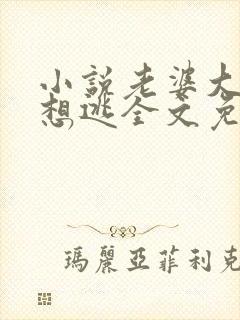 小説老婆大
想逃全文免
瑪麗亞菲利克